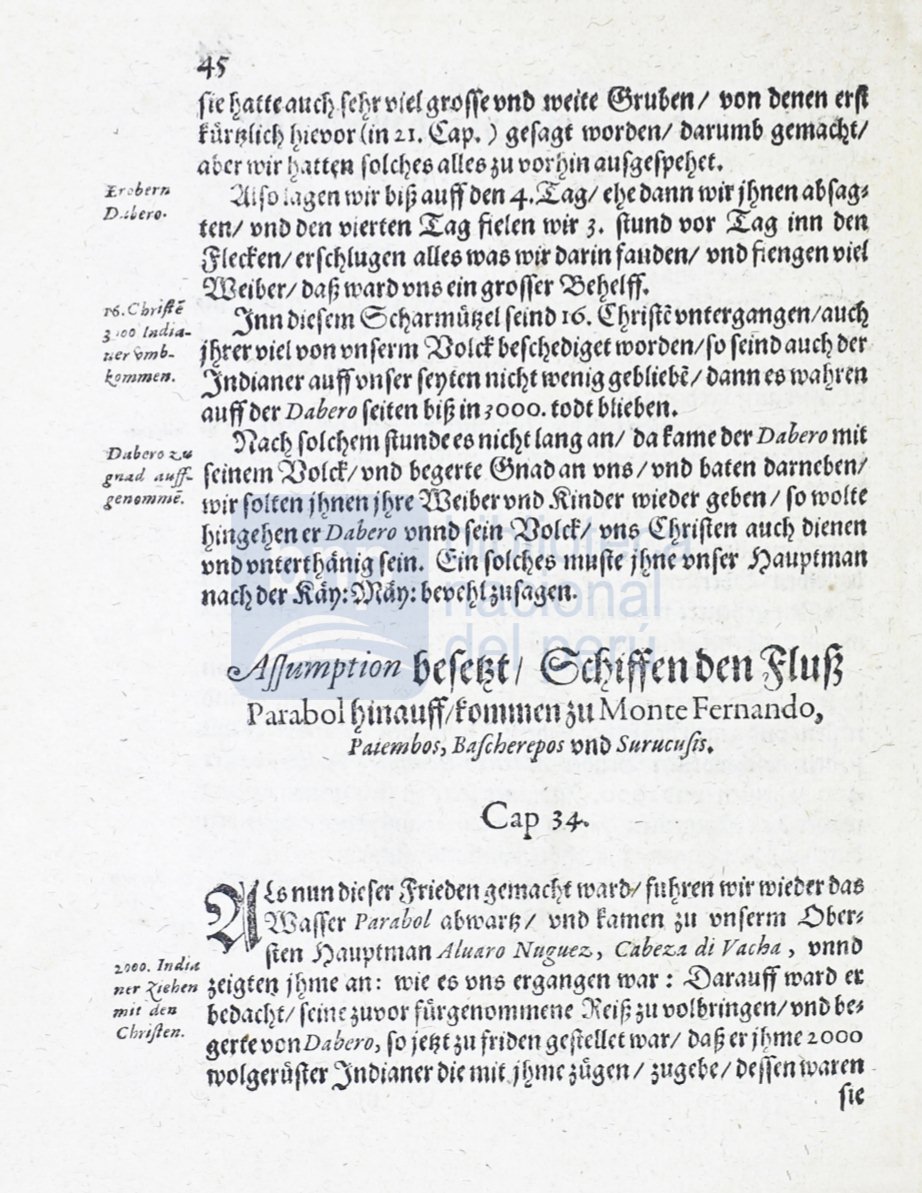 45
sie hatte auch sehr viel grosse vnd weite Gruben/ von denen erst
kürtzlich hievor (in 21. Cap.) gesagt worden/ darumb gemacht/
aber wir hatten solches alles zu vorhin ausgespehet.
Erobern
Dabero.
Also lagen wir biß auff den 4. Tag/ ehe dann wir jhnen absag⸗
ten/ vnd den vierten Tag fielen wir 3. stund vor Tag inn den
Flecken/ erschlugen alles was wir darin fanden/ vnd fiengen viel
Weiber/ daß ward vns ein grosser Behelff.
16. Christē
3000 India-
ner vmb-
kommen.
Inn diesem Scharmützel seind 16. Christē vntergangen/ auch
jhrer viel von vnserm Volck beschediget worden/ so seind auch der
Indianer auff vnser seyten nicht wenig gebliebē/ dann es wahren
auff der Dabero seiten biß in 3000. todt blieben.
Dabero zu
gnad auff-
genommē.
Nach solchem stunde es nicht lang an/ da kame der Dabero mit
seinem Volck/ vnd begerte Gnad an vns/ vnd baten darneben/
wir solten jhnen jhre Weiber vnd Kinder wieder geben/ so wolte
hingehen er Dabero vnnd sein Volck/ vns Christen auch dienen
vnd vnterthänig sein. Ein solches muste jhne vnser Hauptman
nach der Käy: Mäy: bevehl zusagen.
bnp biblioteca
nacional
del perú
Assumption besetzt/ Schiffen den Fluß
Parabol hinauff/ kommen zu Monte Fernando,
Paiembos, Bascherepos vnd Surucusis.
Cap 34.
ALs nun dieser Frieden gemacht ward/ fuhren wir wieder das
Wasser Parabol abwartz/ vnd kamen zu vnserm Ober⸗
sten Hauptman Aluaro Nuguez, Cabeza di Vacha, vnnd
2000. India
ner Ziehen
mit den
Christen.
zeigten jhme an: wie es vns ergangen war: Darauff ward er
bedacht/ seine zuvor fürgenommene Reiß zu volbringen/ vnd be⸗
gerte von Dabero, so jetzt zu friden gestellet war/ daß er jhme 2000
wolgerüster Indianer die mit jhme zügen/ zugebe/ dessen waren
sie